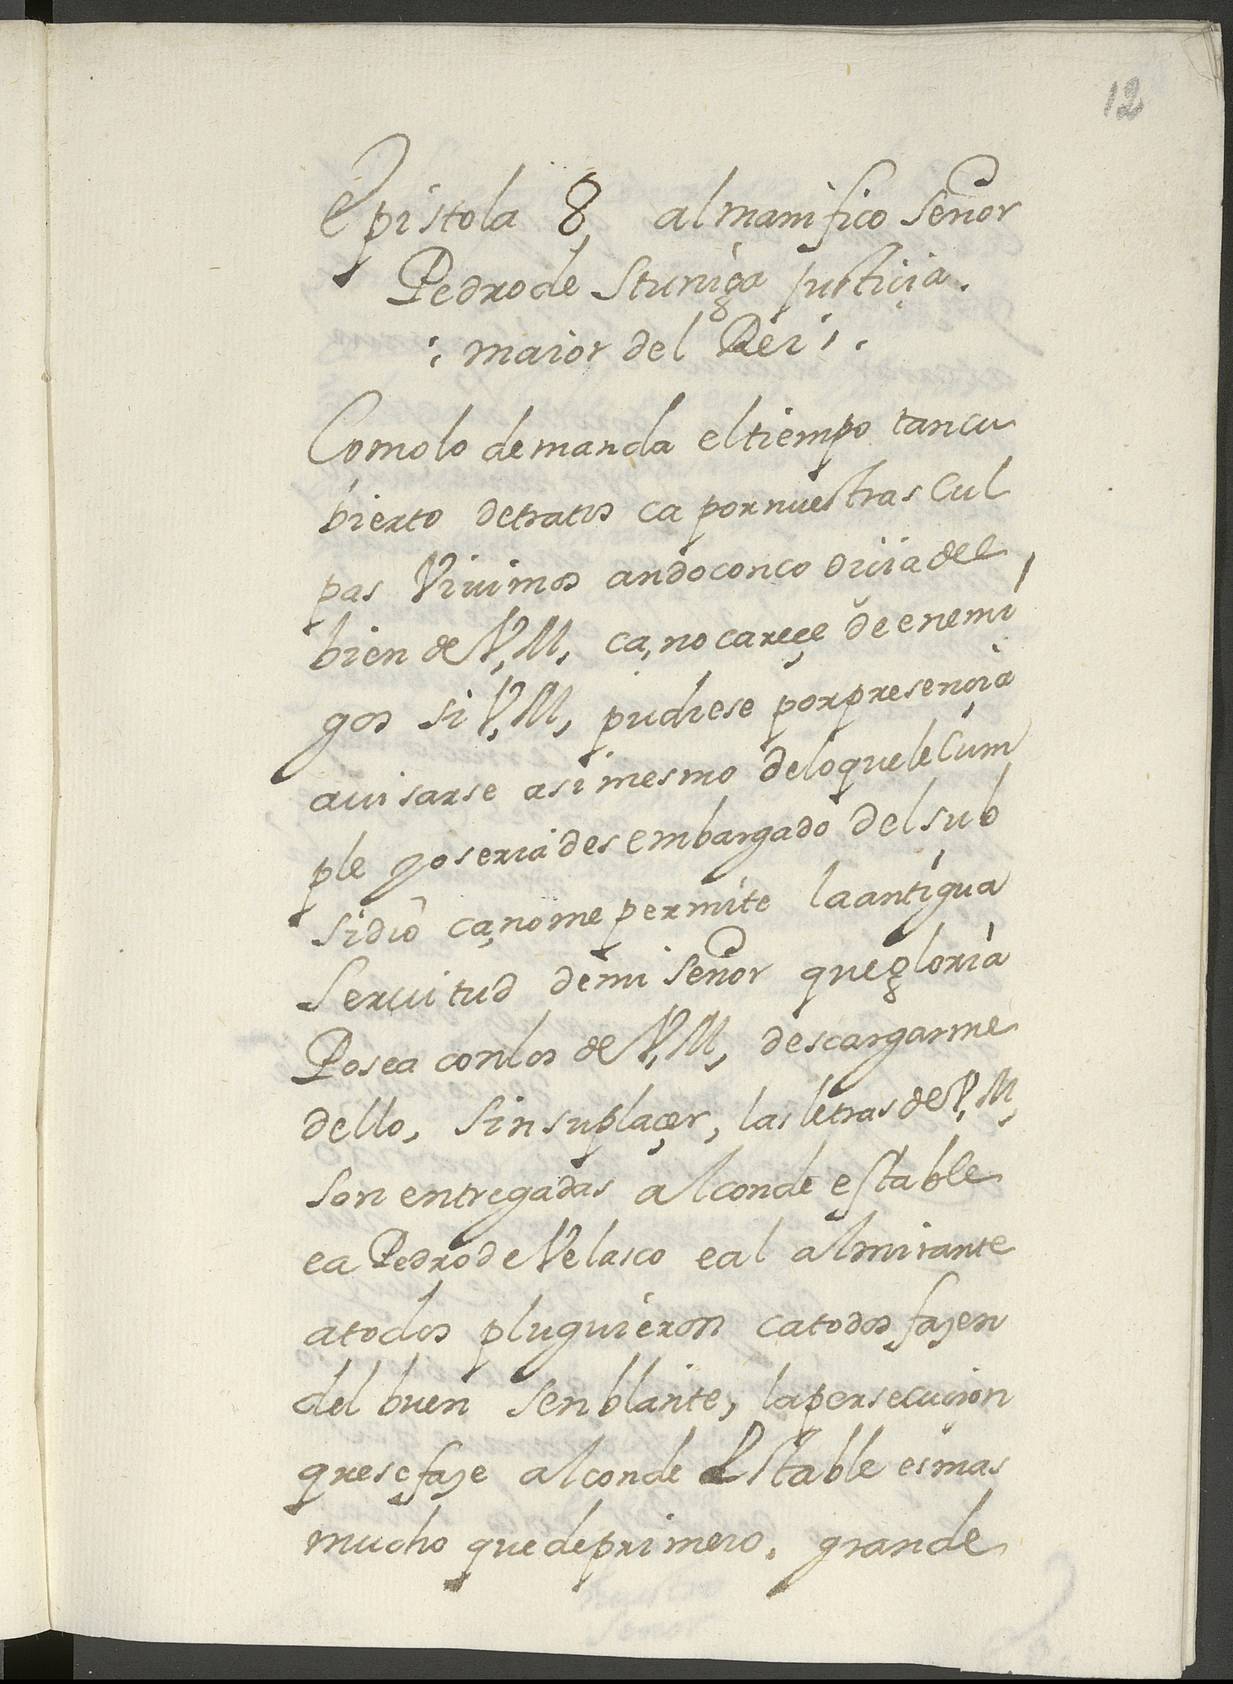 12
epistola 8, al manifico señor
Pedro de Stuñiga justiçia.
: maior del Rei :.
Como lo demanda el tiempo tan cu
bierto de tratos ca por nuestras cul
pas Vivimos ando con codiçia del
bien de V, M, ca, no careçe de enemi
gos si V, M, pudiese por presençia
auisarse asi mesmo de lo que le cum
ple yo seria desembargado del sub
sidio ca, no me permite la antigua
seruitud de mi señor que gloria
Posea con los de V, M, descargarme
dello, sin su plaçer, las letras de V, M,
son entregadas al conde estable
e a Pedro de Velasco e al almirante
a todos pluguieron ca todos fazen
del buen senblante, la persecuçion
que se faze al conde estable es mas
mucho que de primero. grande